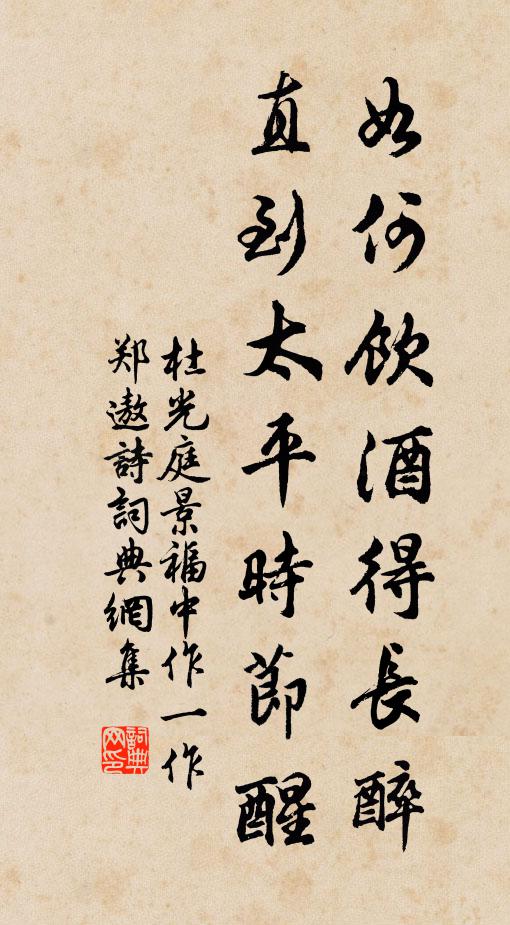 如何飲酒得長醉
直到太平時節醒
杜光庭景福中作一作
郑遨詩詞典網集
詞典
网印